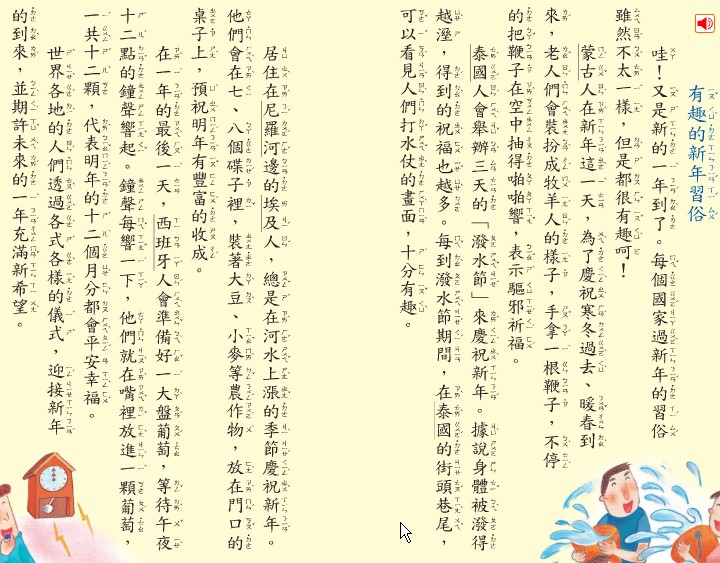 有趣的新年習俗
哇！又是新的一年到了。每個國家過新年的習俗
雖然不太一樣，但是都很有趣呵！
蒙古人在新年這一天，為了慶祝寒冬過去、暖春到
來，老人們會裝扮成牧羊人的樣子，手拿一根鞭子，不停
的把鞭子在空中抽得啪啪響，表示驅邪祈福。
泰國人會舉辦三天的「潑水節」來慶祝新年。據說身體被潑得
越溼，得到的祝福也越多。每到潑水節期間，在泰國的街頭巷尾，
可以看見人們打水仗的畫面，十分有趣。
居住在尼羅河邊的埃及人，總是在河水上漲的季節慶祝新年。
他們會在七、八個碟子裡，裝著大豆、小麥等農作物，放在門口的
桌子上，預祝明年有豐富的收成。
在一年的最後一天，西班牙人會準備好一大盤葡萄，等待午夜
十二點的鐘聲響起。鐘聲每響一下，他們就在嘴裡放進一顆葡萄，
一共十二顆，代表明年的十二個月分都會平安幸福。
世界各地的人們透過各式各樣的儀式，迎接新年
的到來，並期許未來的一年充滿新希望。